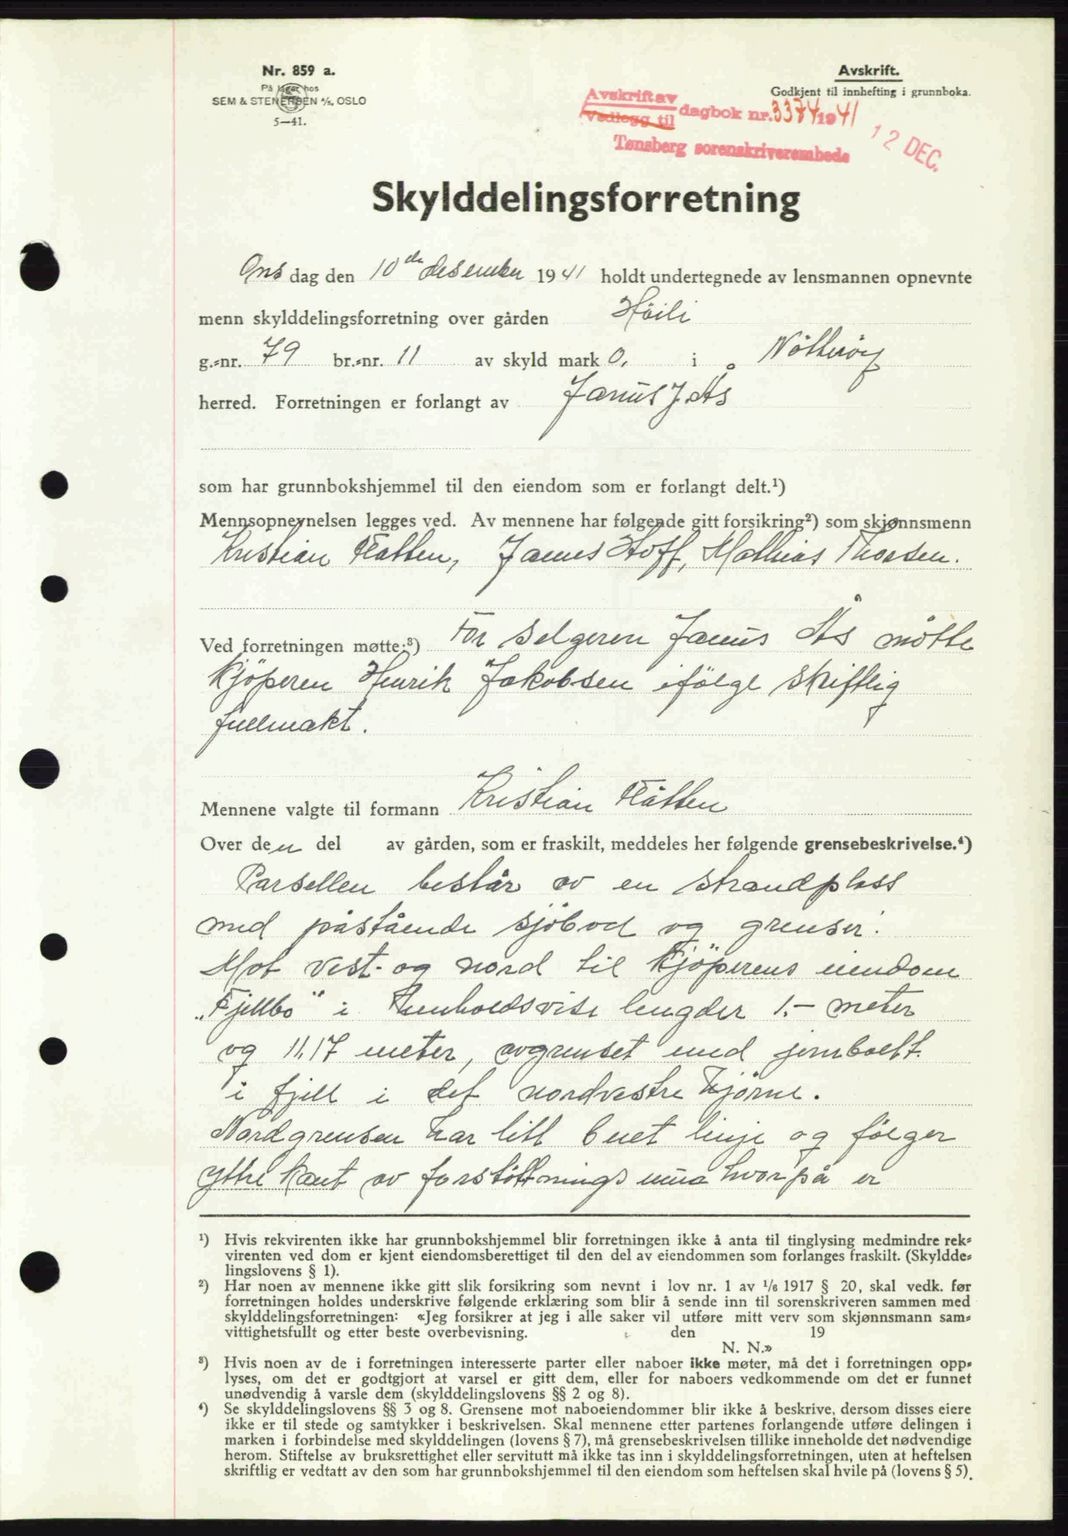 Nr. 859 a.
På lager hos
SEM & STENERSEN A/S, OSLO
5—41.
Avskrift.
Godkjent til innhefting i grunnboka.
Avskrift av
Vedlegg til
dagbok nr. 3374 1941
Tønsberg sorenskriverembede
12 DEC.
Skylddelingsforretning
Ons dag den 10de desember 1941 holdt undertegnede av lensmannen opnevnte
menn skylddelingsforretning over gården Høili
g.-nr. 79 br.-nr. 11 av skyld mark 0, i Nøtterøy
herred. Forretningen er forlangt av Janus J. Ås
som har grunnbokshjemmel til den eiendom som er forlangt delt.¹)
Mennsopnevnelsen legges ved. Av mennene har følgende gitt forsikring²) som skjønnsmenn
Kristian Flåtten, James Hoff, Mathias Thorsen.
Ved forretningen møtte:³) For selgeren Janus Ås møtte
kjöperen Henrik Jakobsen ifölge skriftlig
fullmakt.
Mennene valgte til formann Kristian Flåtten
Over den del av gården, som er fraskilt, meddeles her følgende grensebeskrivelse.⁴)
Parsellen består av en strandplass
med påstående sjöbod og grenser:
Mot vest- og nord til kjöperens eiendom
„Fjellbo" i henholdsvise lengder 1.- meter
og 11.17 meter, avgrenset med jernbolt
i fjell i det nordvestre hjörne.
Nordgrensen har litt buet linje og fölger
ytre kant av forstötningsmur hvorpå er
¹) Hvis rekvirenten ikke har grunnbokshjemmel blir forretningen ikke å anta til tinglysing medmindre rek-
virenten ved dom er kjent eiendomsberettiget til den del av eiendommen som forlanges fraskilt. (Skyldde-
lingslovens § 1).
²) Har noen av mennene ikke gitt slik forsikring som nevnt i lov nr. 1 av ¹/₆ 1917 § 20, skal vedk. før
forretningen holdes underskrive følgende erklæring som blir å sende inn til sorenskriveren sammen med
skylddelingsforretningen: «Jeg forsikrer at jeg i alle saker vil utføre mitt verv som skjønnsmann sam-
vittighetsfullt og etter beste overbevisning. den 19
N. N.»
³) Hvis noen av de i forretningen interesserte parter eller naboer ikke møter, må det i forretningen opp-
lyses, om det er godtgjort at varsel er gitt dem, eller for naboers vedkommende om det er funnet
unødvendig å varsle dem (skylddelingslovens §§ 2 og 8).
⁴) Se skylddelingslovens §§ 3 og 8. Grensene mot naboeiendommer blir ikke å beskrive, dersom disses eiere
ikke er til stede og samtykker i beskrivelsen. Skal mennene etter partenes forlangende utføre delingen i
marken i forbindelse med skylddelingen (lovens § 7), må grensebeskrivelsen tillike inneholde det nødvendige
herom. Stiftelse av bruksrettighet eller servitutt må ikke tas inn i skylddelingsforretningen, uten at heftelsen
skriftlig er vedtatt av den som har grunnbokshjemmel til den eiendom som heftelsen skal hvile på (lovens § 5).